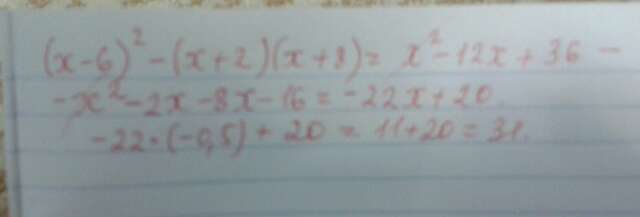 (x-6)² - (x+2)(x+8) = x² - 12x + 36 -
- x² - 2x - 8x - 16 = -22x + 20
-22·(-0,5) + 20 = 11+20 = 31.